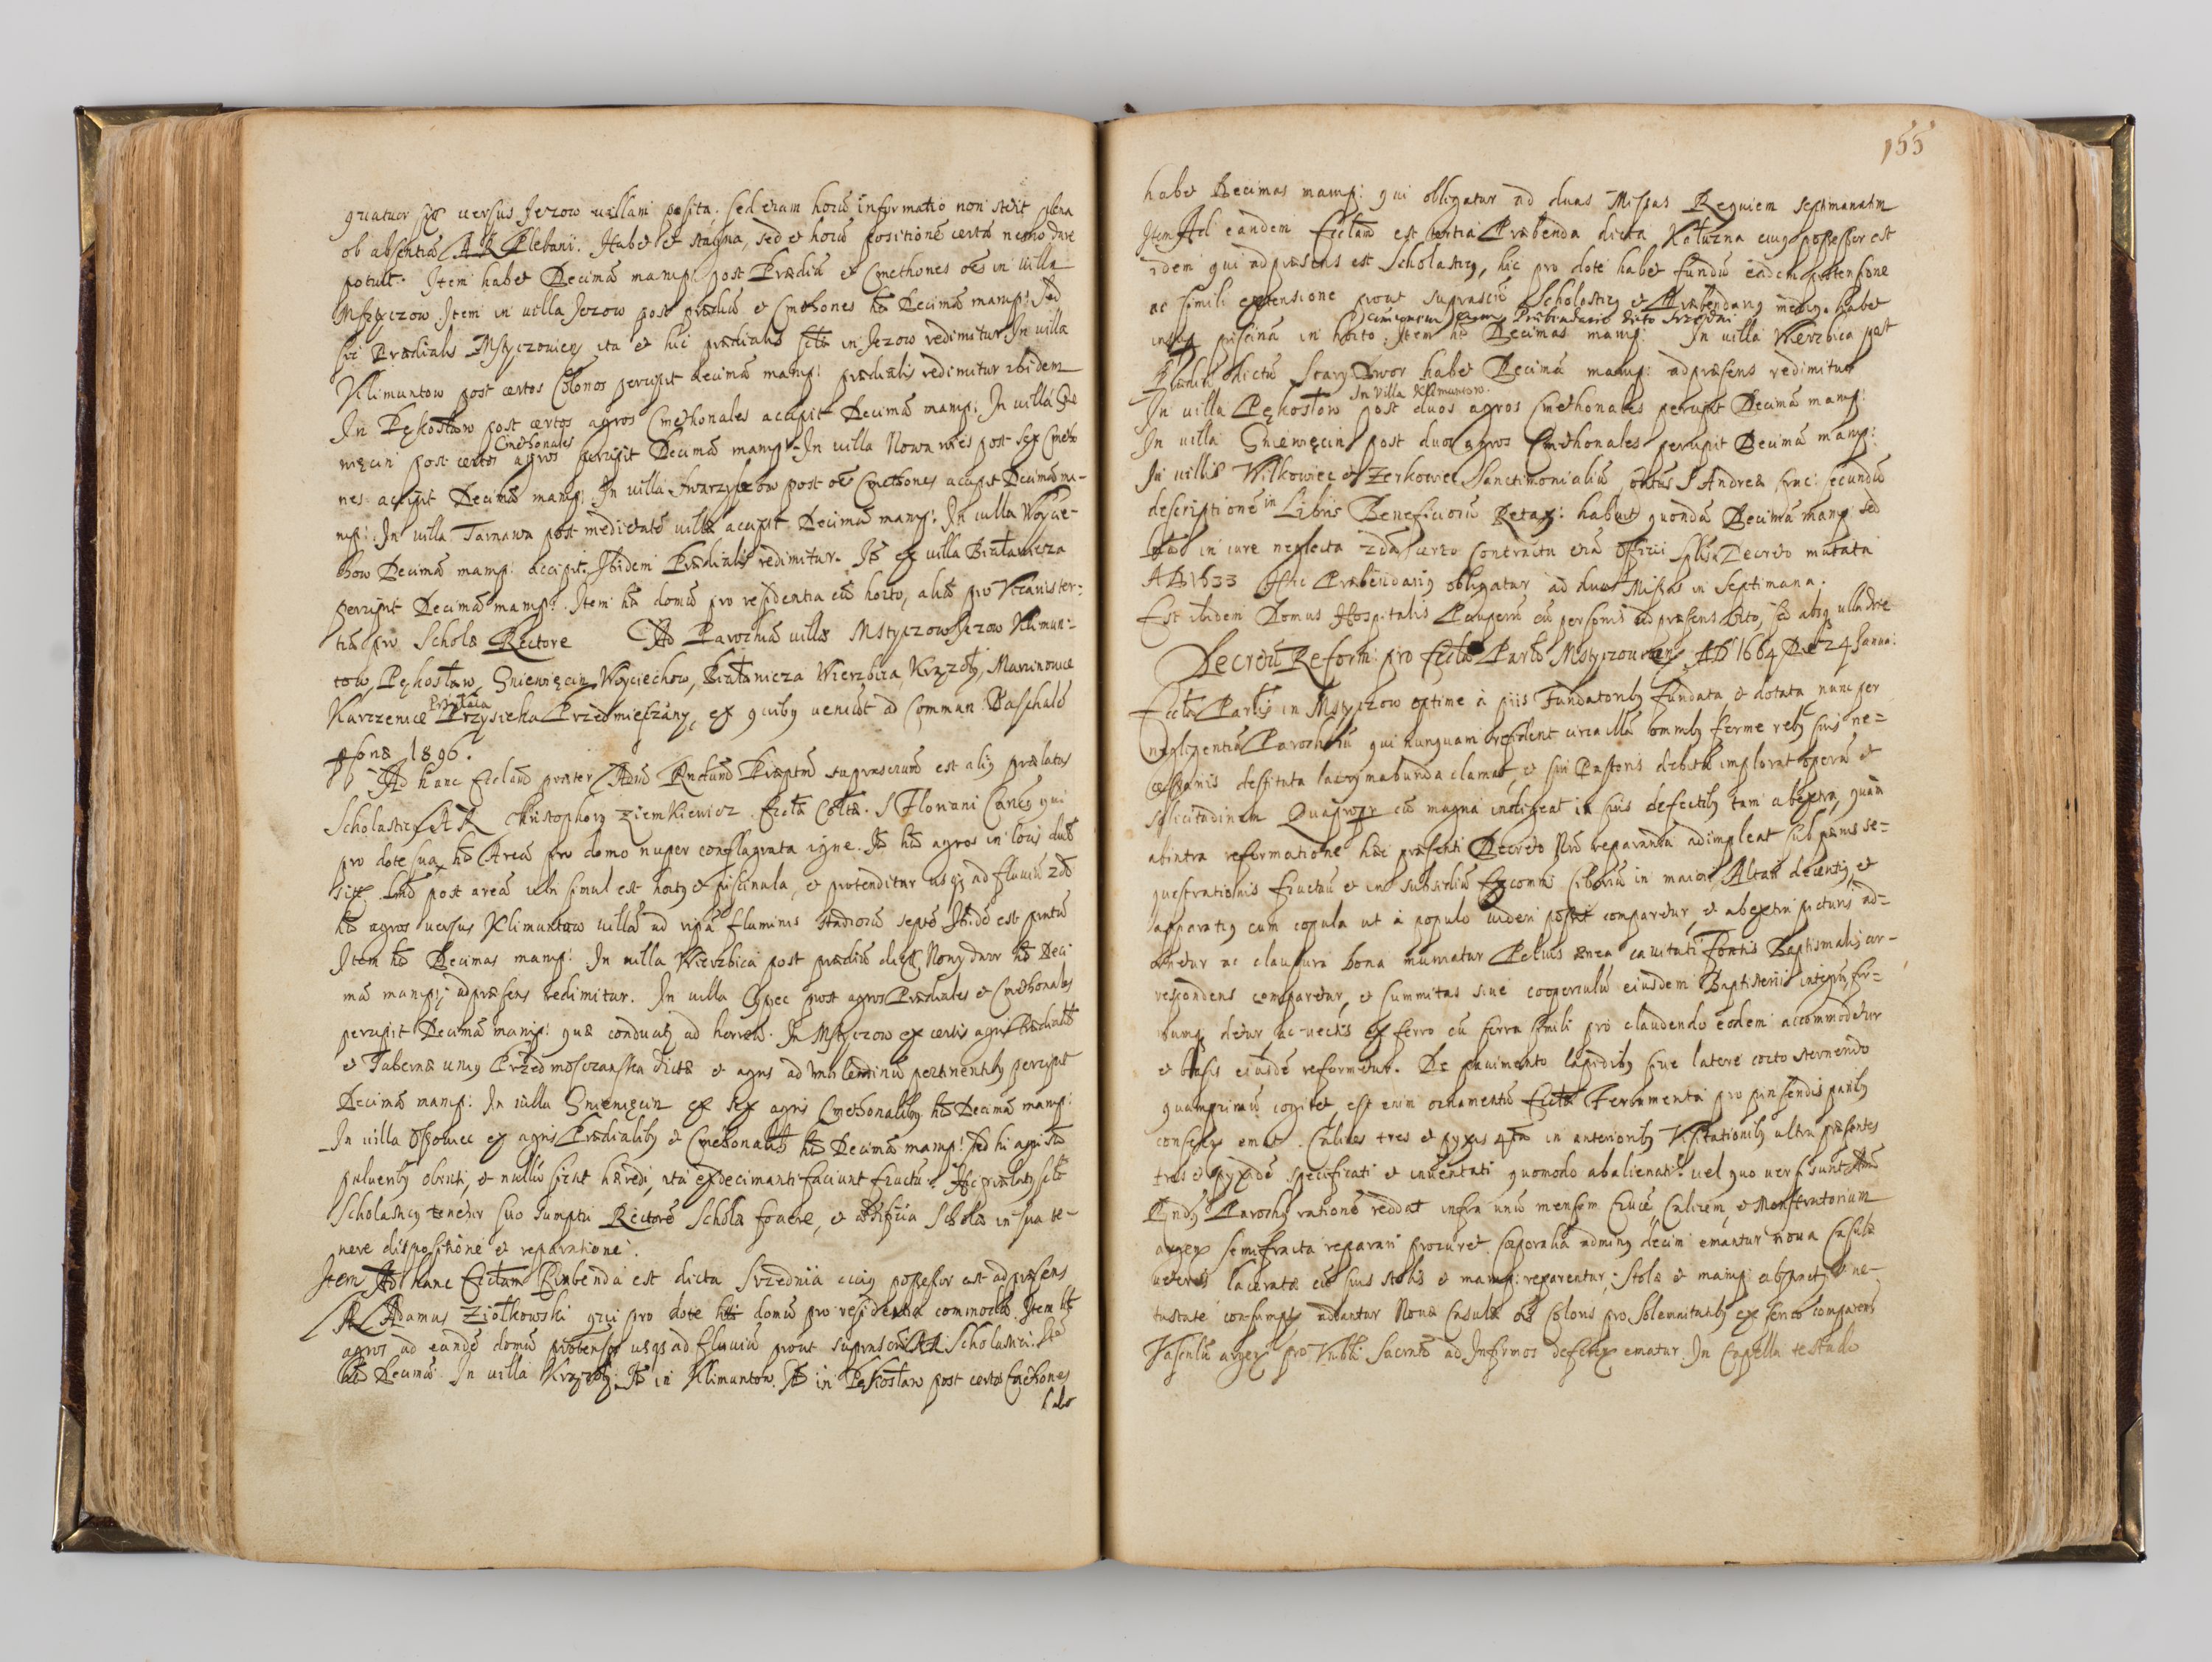 quatuor siti versus Jezow villam posita, sed etiam horũ informatio non stetit plena
ob absentiã A R Plebani. Habet et stagna, sed et horũ positionẽ certã nemo dare
potuit. Item habet Decimã manip: post Prædiũ et Cmethones oẽs in villa
Mstyczow Item in villa Jezow post prædiũ et Cmethones hẽt Decimã manip: sed
sic Prædialis Mstyczovien: ita et hic prædialis in Jezow redimitur In villa
Klimuntow post certos Colonos percipit decimã manip: prædialis redimitur ibidem
In Pękosław post certos agros Cmethonales accipit Decimã manip: In villa Gnie
więcin post certos agros percipit Decimã manip: In villa Nowa wies post sex Cmetho
Cmethonales
nes accipit Decimã manip: In villa post oẽs Cmethones accipit Decimã ma-
nip: In villa Tarnawa post medietatẽ villæ accipit Decimã manip: In villa Woycie-
chow Decimã manip: accipit. Ibidem Prædialis redimitur. Itẽ ex villa
percipit Decimã manip: Item hẽt domũ pro residentia cũ horto, aliã pro Vicariis ter-
tiã pro Scholæ Rectore Ad Parochiã villæ Mstyczow Jezow Klimun-
tow, Pękosław, Gniewięcin Woyciechow, Wierzbica,
Przysieka Przedmieszczany, ex quibus veniũt ad Commun: Paschalẽ
psonæ 1896.
Ad hanc Ecclam præter Admũ Rndum Præptũ suprascriptum est alius prælatus
Scholasticus A R Christophorus Ziemkiewicz Ecclæ Collæ S Floriani Cancus qui
pro dote sua hẽt Areã pro domo nuper conflagrata igne. Itẽ hẽt agros in locis duobus
sitos. post areã ubi simul est hortus et piscinula, et protenditur usq; ad fluviũ 2do
hẽt agros versus Klimuntow villã ad ripã fluminis Ibidẽ est pratũ
Item hẽt Decimas manip: In villa Wierzbica post prædiũ dictũ Nowy dwor hẽt Deci
mã manip; ad præsens redimitur. In villa post agros Prædiales et Cmethonales
percipit Decimã manip: quæ conducitur ad horreũ. In Mstyczow ex certis agris Prædialibus
et Tabernæ unius dictæ et agris ad Molendinũ pertinentibus percipit
Decimã manip: In villa Gniewięcin ex sex agris Cmethonalibus hẽt Decimã manip:
In villa ex agris Prædialibus et Cmethonalibus hẽt Decimã manip! sed hi agri
pulveribus obruti, et nullũ sicut hæredi, ita exdecimanti faciunt fructũ. Hic prælatus
Scholasticus tenetur suo sumptu Rectorẽ Scholæ fovere, et ædificia Scholæ in sua te-
nere dispositione et reparatione.
Item Ad hanc Ecclam Præbenda est dicta Srzednia cuius possessor est ad præsens
A R Adamus Ziołkowski qui pro dote hẽt domũ pro residentia commodã. Item hẽt
agros ad eandẽ domũ protensos usq; ad fluviũ prout suprascriptus A R Scholasticus. Itẽ
hẽt Decimã In villa Itẽ in Klimuntow. Itẽ in Pękosław post certos Cmethones
habet
155
habet Decimas manip: qui obligatur ad duas Missas Requiem septimanatim
Item Ad eandem Ecclam est tertia Præbenda dicta Kałuzna cuius possessor est
idem qui ad præsens est Scholasticus, hic pro dote habet fundũ eadem protensione
ac simili extensione prout suprascriptus Scholasticus et Præbendarius medius. habet
communem cum Præbendario dicto Srzedni
piscinã in horto. Item hẽt Decimas manip: In villa Wierzbica post
Prædiũ dictũ Stary Dwor habet Decimã manip: ad præsens redimitur
In villa Klimuntow.
In villa Pękosłow post duos agros Cmethonales percipit Decimã manip:
In villa Gniewięcin post duos agros Cmethonales percipit Decimã manip:
In villis Wilkowiec et Zerkowiec Sanctimonialiũ S Andreæ Crac: secundũ
descriptionẽ in Libris Beneficiorũ Retax: habuit quondã Decimã manip sed
in iure neglecta certo contractu Officii Decreto mutata
AD 1633 Hic Præbendarius obligatur ad duas Missas in Septimana.
Est ibidem Domus Hospitalis Pauperũ cũ personis ad præsens octo, sed absq; ulla dote
Decretũ Reform: pro Eccla Parli Mstyczovien: AD 1664 Die 24 Janua:
Eccla Parlis in Mstyczow optime à piis Fundatoribus fundata, et dotata nunc per
negligentiã Parochorũ qui nunquam resident circa illã omnibus ferme rebus suis ne=
cessariis destituta lacrymabunda clamat, et sui Pastoris debitã implorat operã et
solicitudinem Quapropr cũ magna indigeat in suis defectibus tam abextra, quàm
abintra reformatione hæc præsenti Decreto Nro reparanda adimpleat sub pænis se=
questrationis fructuũ et in subsidiũ Excommi Ciboriũ in maiori Altari decentius et
apparatius cum copula ut à populo videri possit comparetur, et abextra picturis ad=
ornetur ac clausura bona muniatur Pelvis ænea cavitati Fontis Baptismalis cor-
respondens comparetur, et summitas sive cooperculũ eiusdem Baptisterii integrius for=
tiusq; detur, ac vectis ex ferro cũ serra simili pro claudendo eodem accommodetur
et basis eiusdẽ reformetur. De pavimento lapidibus sive latere cocto sternendo
quamprimũ cogitet, est enim ornamentũ Ecclæ Ferramenta pro pinsendis panibus
emat. Calices tres et pyxis 4ta in anterioribus Visitationibus ultra præsentes
tres et pyxidẽ specificati et inventati quomodo abalienati? vel quo versi sunt Admũ
Rndus Parochus rationẽ reddat infra unũ mensem Crucẽ Calicem, et Monstratorium
argen: semifracta reparari procuret. Corporalia adminus decim emantur nova Casulæ
veteres laceratæ cũ suis stolis et manip: reparentur; Stolæ et manip: ve-
tustate consumptæ addantur Novæ Casulæ oĩs Coloris pro Solemnitatibus ex serico comparentur
Vasculũ argen: pro Sacrato ad Infirmos defer: ematur. In Capella testudo